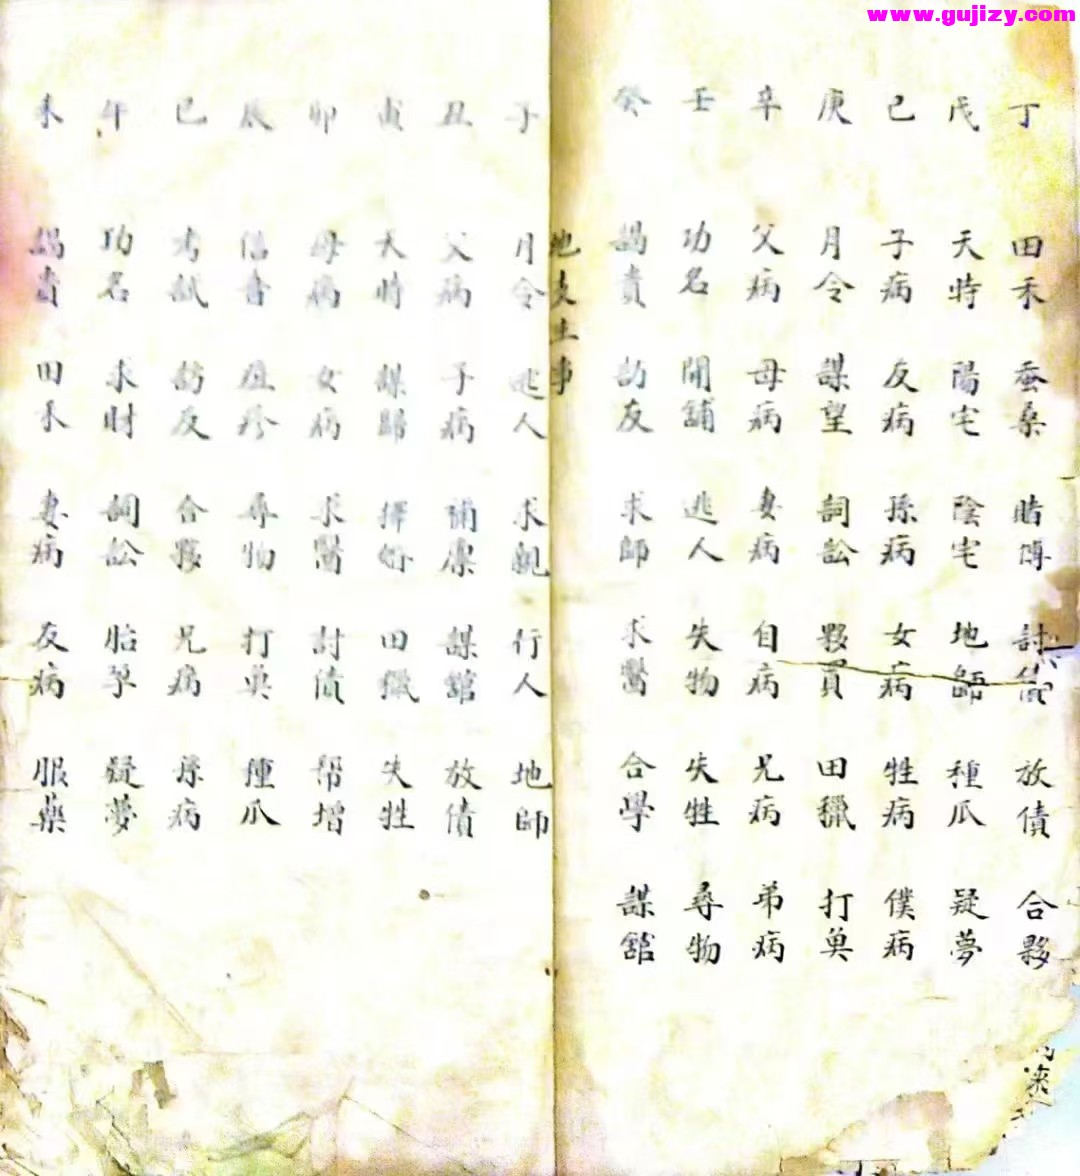 www.gujizy.com
丁 田禾 蚕桑 賭博 討債 放債 合夥
戊 天時 陽宅 陰宅 地師 種瓜 疑夢
己 子病 友病 孫病 女病 牲病 僕病
庚 月令 謀望 詞訟 夥買 田獵 打奠
辛 父病 母病 妻病 自病 兄病 弟病
壬 功名 開舖 逃人 失物 失牲 尋物
癸 謁貴 訪友 求師 求醫 合學 謀舘
地支主事
子 月令 逃人 求親 行人 地師
丑 父病 子病 補廩 謀舘 放債
寅 天時 謀歸 擇婚 田獵 失牲
卯 母病 女病 求醫 討債 帮增
辰 信書 痘疹 尋物 打奠 種瓜
巳 考試 訪友 合夥 兄病 孫病
午 功名 求財 詞訟 胎孕 疑夢
未 謁貴 田禾 妻病 友病 服藥